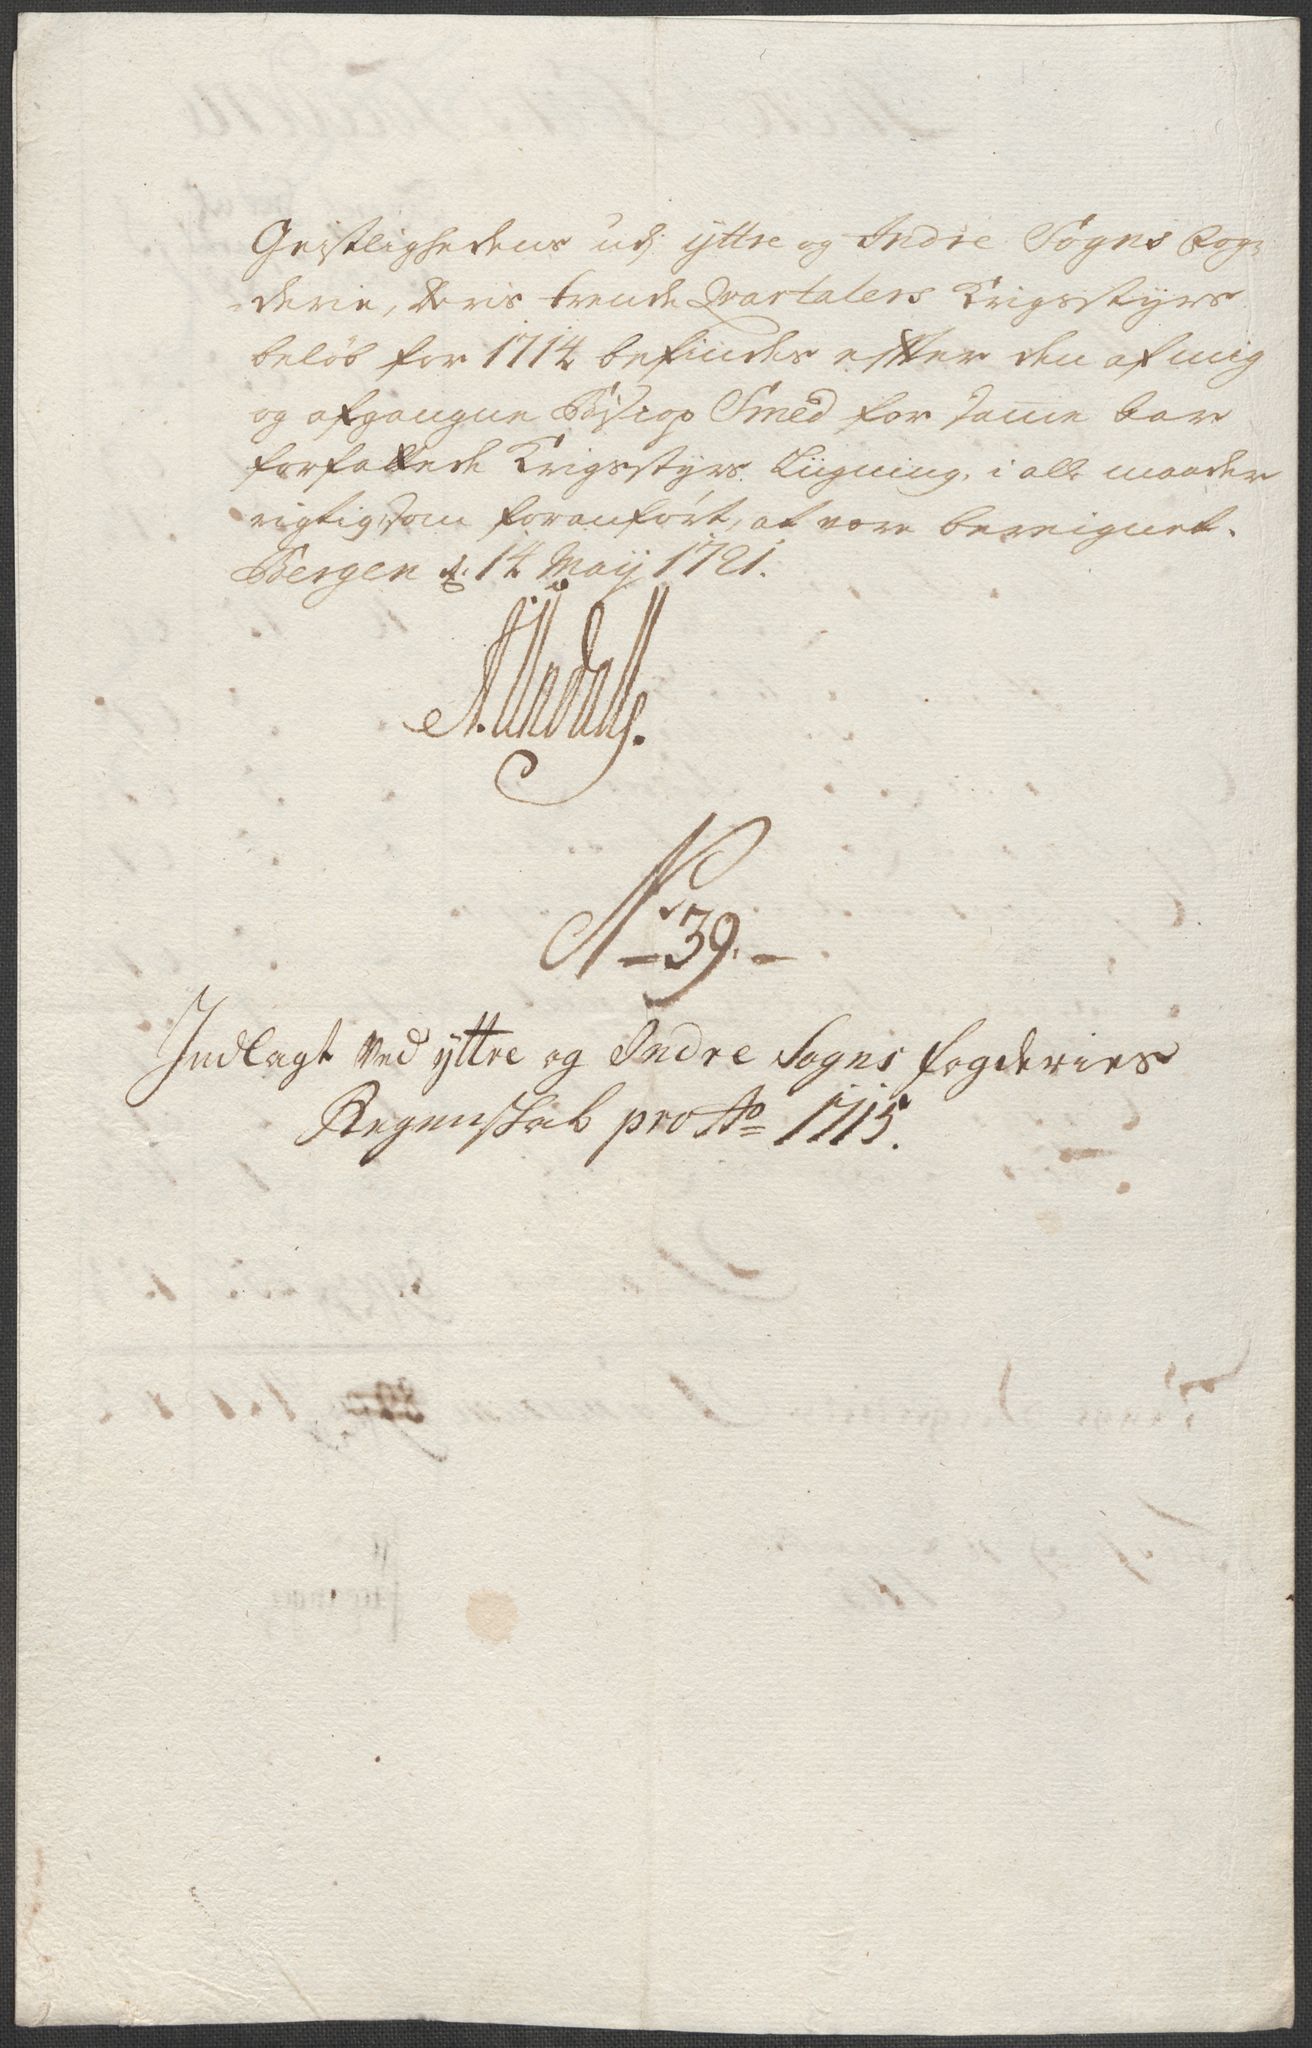 Geistlighedens udj yttre og Indre Sogns Fog,,
derie, deris trende Qvartalers Krigsstyrs
beløb for 1714 befindes efter den af mig
og afgangne Biscop Smed for samme
forfattede Krigsstyrs Liigning, i alle maader
rigtig, som foranført, at være bereignet.
Bergen d. 14 Maij 1721.
No 39.
Indlagt ved yttre og Indre Sogns fogderies
Regenskab pro Ao 1715.